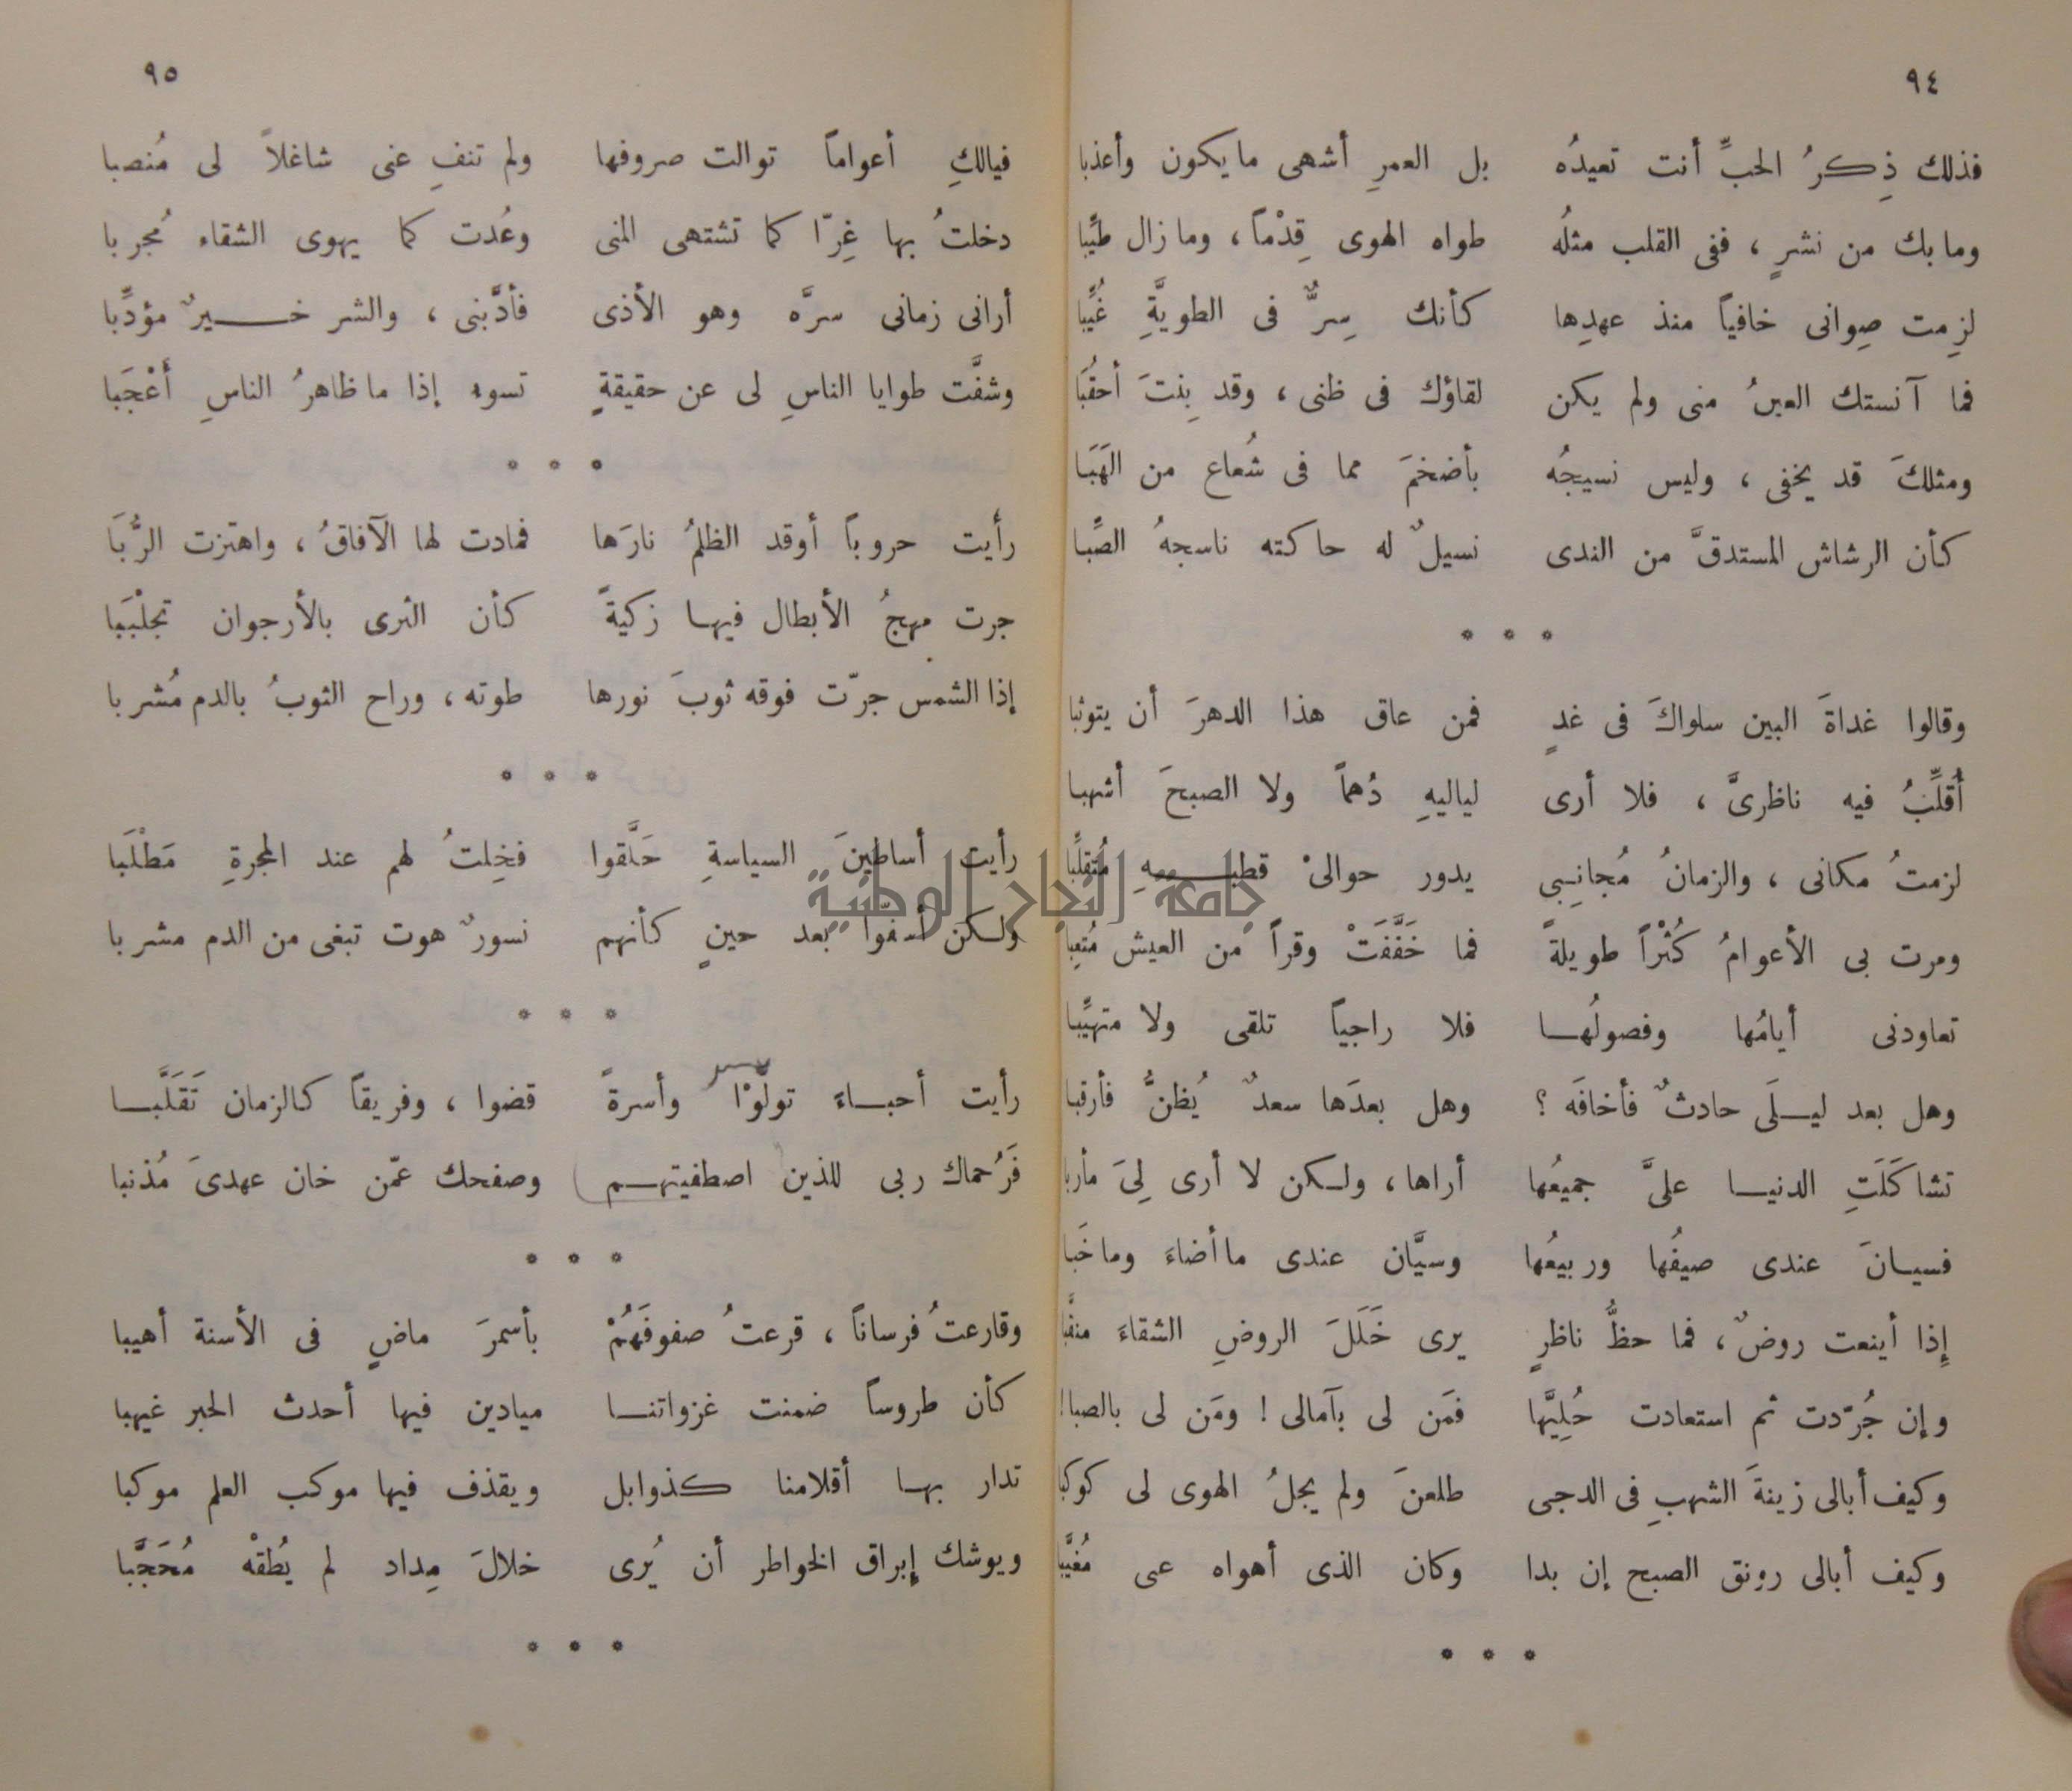 ٩٤
فذلك ذِكرُ الحبِّ أنت تعيدُه بل العمرِ أشهى ما يكون وأعذبا
وما بك من نشرٍ ، ففى القلب مثلُه طواه الهوى قِدْماً ، وما زال طيِّبا
لزِمت صِوانى خافياً منذ عهدِها كأنك سِرٌّ فى الطويَّةِ غُيِّبا
فما آنستك العينُ منى ولم يكن لقاؤك فى ظنى ، وقد بِنتَ أحقُبَا
ومثلكَ قد يخفى ، وليس نسيجُه بأضخمَ مما فى شُعاع من الهَبَا
كأن الرشاش المستدقَّ من الندى نسيلٌ له حاكته ناسجةُ الصَّبا
* * *
وقالوا غداةَ البين سلواكَ فى غدٍ فمن عاق هذا الدهرَ أن يتوثبا
أُقلِّبُ فيه ناظرىَّ ، فلا أرى لياليهِ دُهماً ولا الصبحَ أشهبا
لزمتُ مكانى ، والزمانُ مُجانِبِى يدور حوالىْ قطبـــهِ مُتقلِّبا
ومرت بى الأعوامُ كُثْراً طويلةً فما خَفَّفَتْ وقراً من العيش مُتعِبا
تعاودنى أيامُها وفصولُهـا فلا راجياً تلقى ولا متهيِّبا
وهل بعد ليـلَى حادثٌ فأخافَه ؟ وهل بعدَها سعدٌ يُظنُّ فأرقبا
تشاكَلَتِ الدنيـا علىَّ جميعُها أراها ، ولـكن لا أرى لِىَ مأربا
فسيـانَ عندى صيفُها وربيعُها وسيَّان عندى ما أضاءَ وما خَبا
إِذا أينعت روضٌ ، فما حظُّ ناظرٍ يرى خَلَلَ الروضِ الشقاءَ منقَّبا
وإن جُرّدت ثم استعادت حُلِيَّها فمَن لى بآمالى ! ومَن لى بالصبا!
وكيف أبالى زينةَ الشهبِ فى الدجى طلعنَ ولم يجلُ الهوى لى كوكبا
وكيف أبالى رونق الصبح إن بدا وكان الذى أهواه عى مُغيَّبا
* * *
٩٥
فيالكِ أعواماً توالت صروفها ولم تنفِ عنى شاغلاً لى مُنصبا
دخلتُ بها غِرّا كما تشتهى المنى وعُدت كما يهوى الشقاء مُجربا
أرانى زمانى سرَّه وهو الأذى فأدَّبنى ، والشر خـــيرٌ مؤدِّبا
وشفَّت طوايا الناسِ لى عن حقيقةٍ تسوء إذا ما ظاهرُ الناسِ أَعْجَبا
* * *
رأيت حروباً أوقد الظلمُ نارَها فمادت لها الآفاقُ ، واهتزت الرُّبَا
جرت مهجُ الأبطال فيهـا زكيةً كأن الثرى بالأرجوان تجلْبَبَا
إذا الشمس جرّت فوقه ثوبَ نورها طوته ، وراح الثوبُ بالدم مُشربا
* * *
رأيت أساطينَ السياسةِ حَلَّقوا فخِلتُ لهم عند المجرةِ مَطْلَبا
ولـكن أسفّوا بعد حينٍ كأنهم نسورٌ هوت تبغى من الدم مشربا
* * *
رأيت أحبـاءَ تولَّوْا وأسرةً قضوا ، وفريقاً كالزمان تَقَلَّبـا
فَرُحماك ربى للذين اصطفيتهـم وصفحك عمّن خان عهدىَ مُذنبا
* * *
وقارعتُ فرساناً ، قرعتُ صفوفَهُمْ بأسمرَ ماضٍ فى الأسنة أهيبا
كأن طروساً ضمنت غزواتنـا ميادين فيها أحدث الحبر غيهبا
تدار بهـا أقلامنا كذوابل ويقذف فيها موكب العلم موكبا
ويوشك إِبراق الخواطر أن يُرى خلالَ مِداد لم يُطقْه مُحَجَّبا
* * *
جامعة النجاح الوطنية